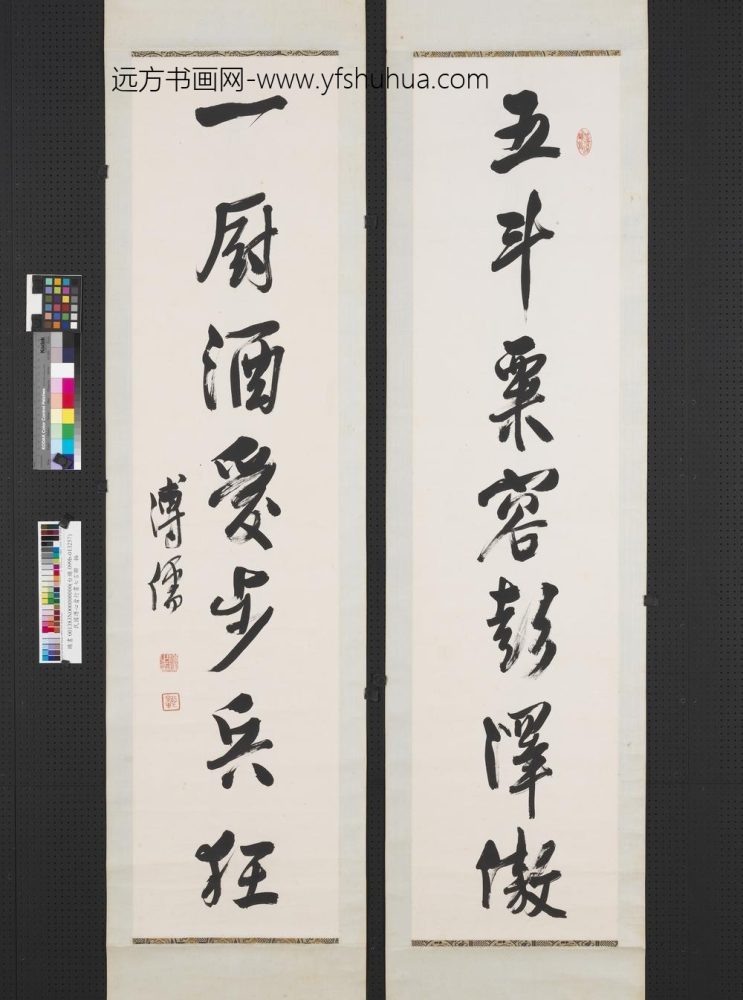 远方书画网-www.yfshuhua.com
五斗粟容彭澤傲
一厨酒愛步兵狂
溥儒